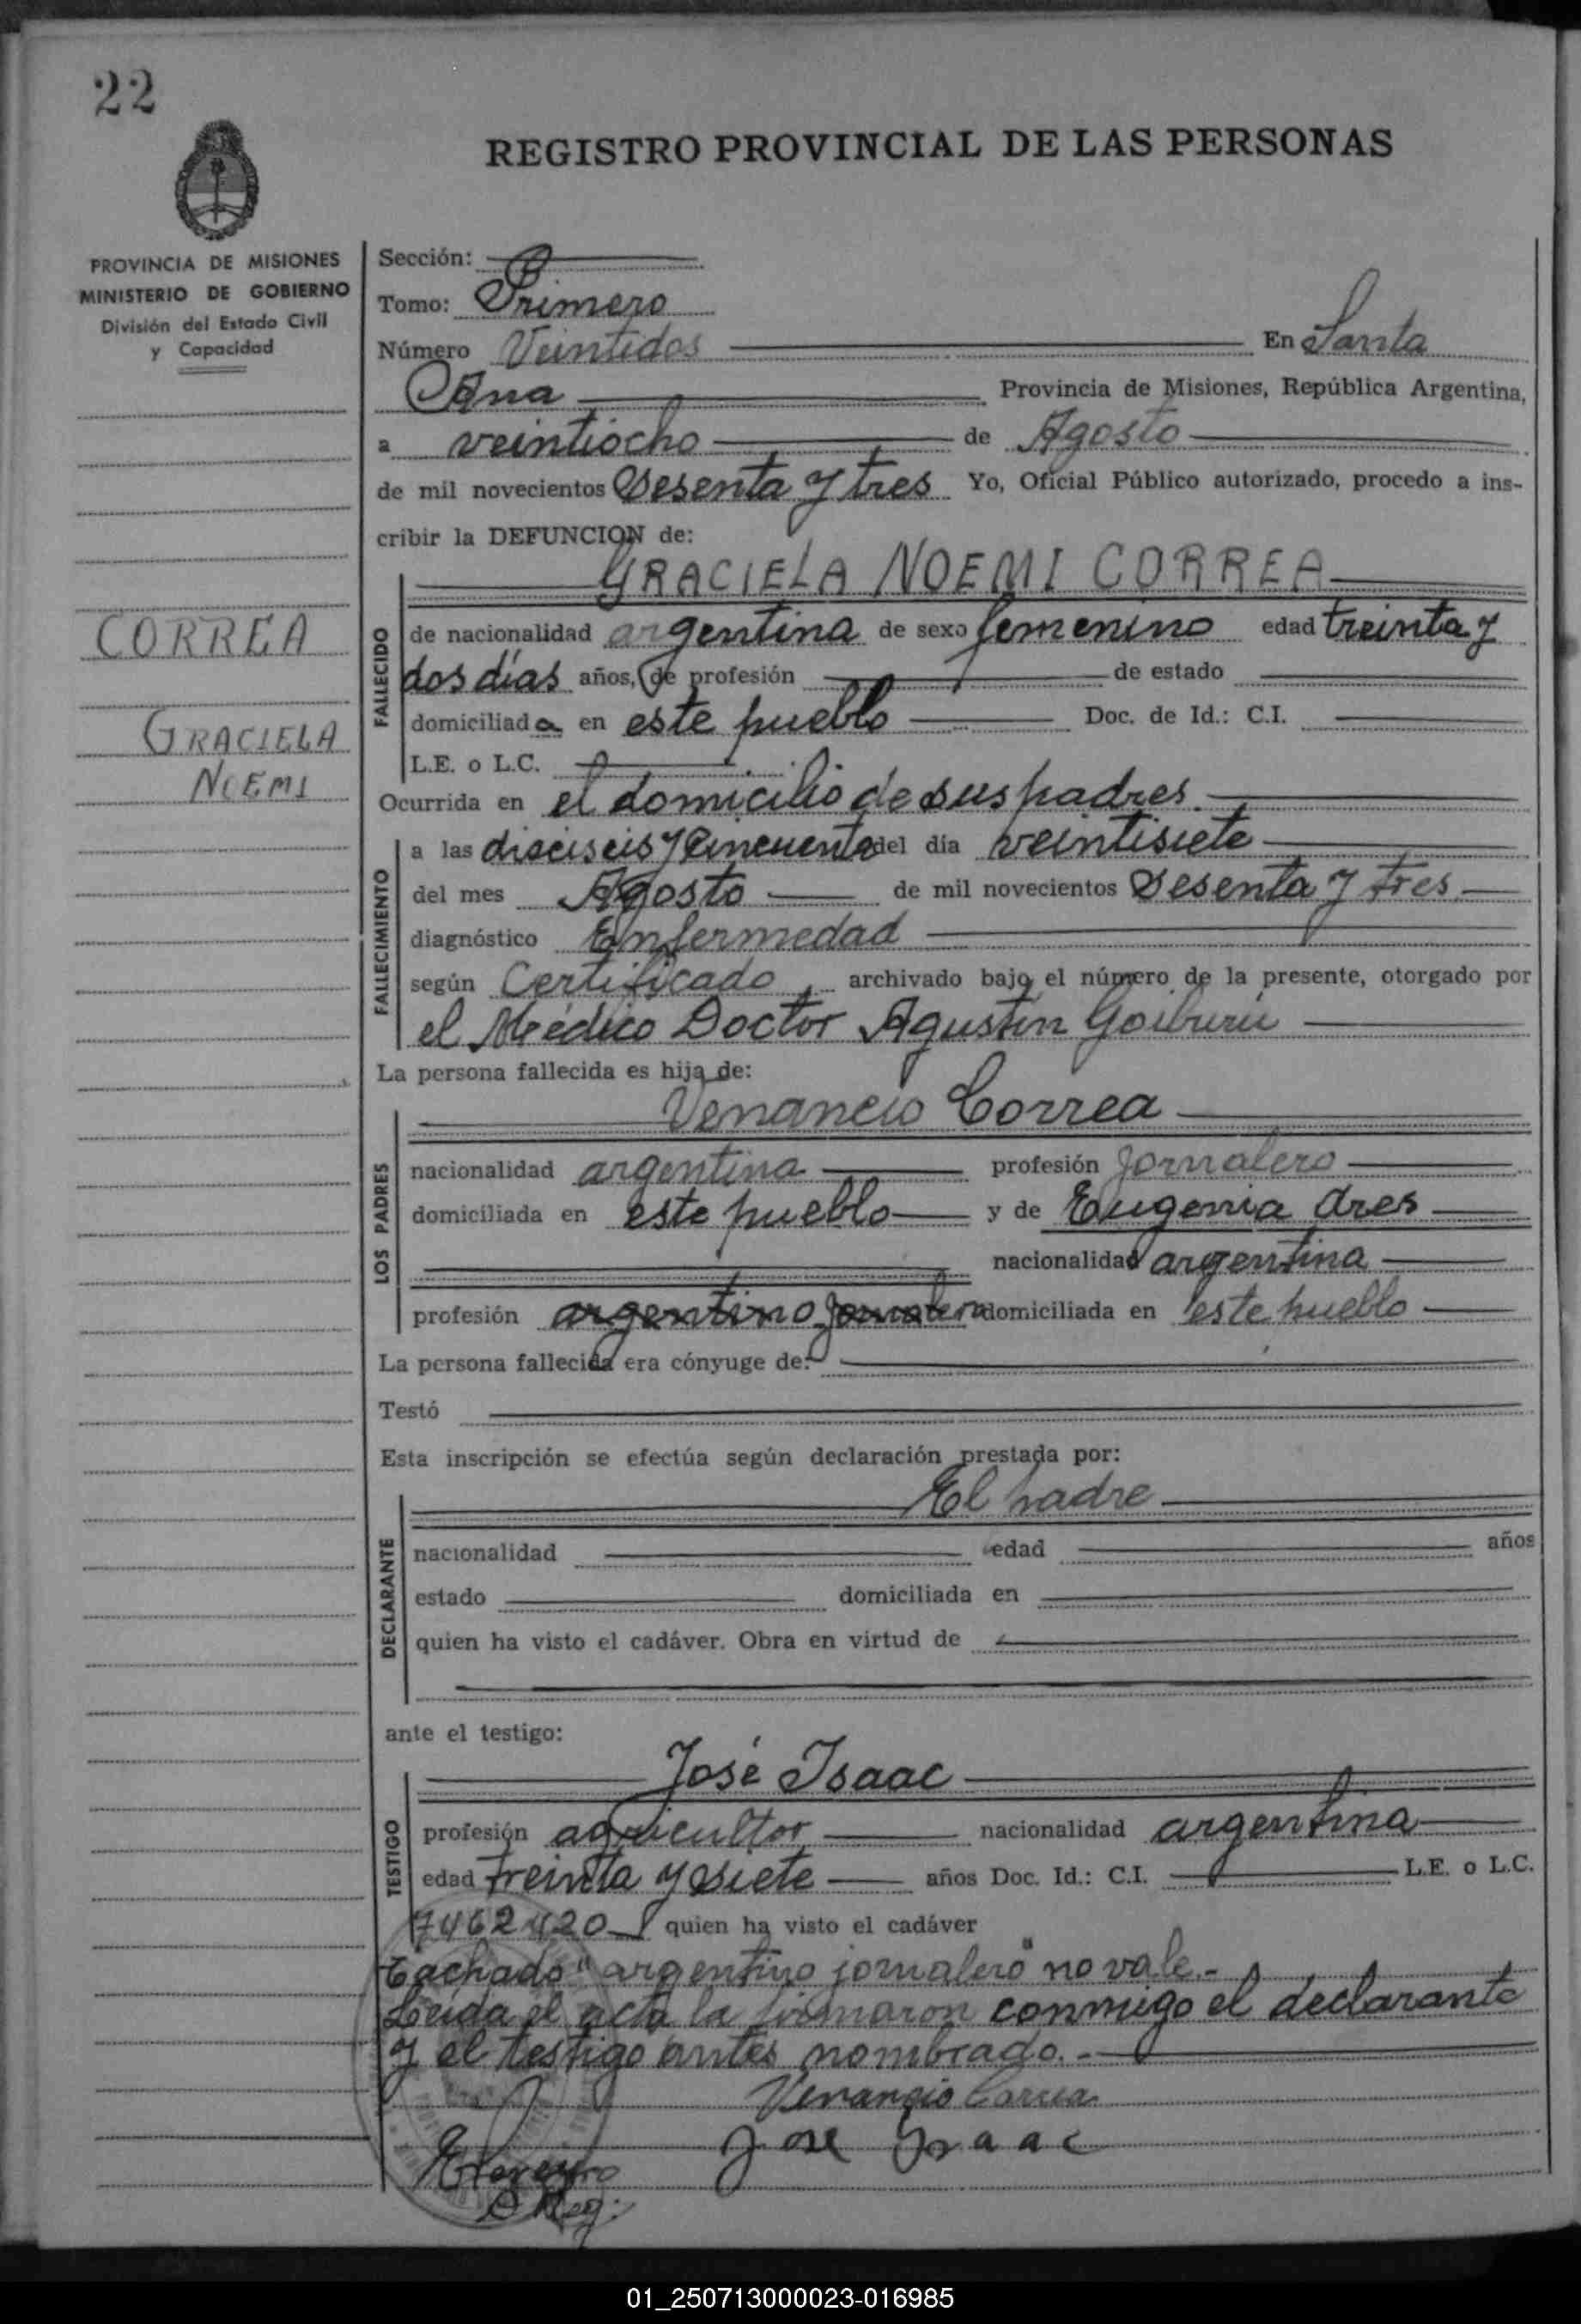 22
REGISTRO PROVINCIAL DE LAS PERSONAS
PROVINCIA DE MISIONES
MINISTERIO DE GOBIERNO
División del Estado Civil
y Capacidad
CORREA
GRACIELA
NOEMI
Sección:
Tomo: Primero
Número Veintidos En Santa
Ana Provincia de Misiones, República Argentina,
a veintiocho de Agosto
de mil novecientos Sesenta y tres Yo, Oficial Público autorizado, procedo a ins-
cribir la DEFUNCION de:
GRACIELA NOEMI CORREA
FALLECIDO
de nacionalidad argentina de sexo femenino edad treinta y
dos días años, de profesión de estado
domiciliada en este pueblo Doc. de Id.: C.I.
L.E. o L.C.
Ocurrida en el domicilio de sus padres.
FALLECIMIENTO
a las dieciseis y Cincuenta del día veintisiete
del mes Agosto de mil novecientos Sesenta y tres
diagnóstico Enfermedad
según Certificado, archivado bajo el número de la presente, otorgado por
el Médico Doctor Agustín Goiburú
La persona fallecida es hija de:
Venancio Correa
LOS PADRES
nacionalidad argentina profesión Jornalero
domiciliada en este pueblo y de Eugenia Ares
nacionalidad argentina
profesión argentino Jornalero domiciliada en este pueblo
La persona fallecida era cónyuge de:
Testó
Esta inscripción se efectúa según declaración prestada por:
El padre
DECLARANTE
nacionalidad edad años
estado domiciliada en
quien ha visto el cadáver. Obra en virtud de
ante el testigo:
José Isaac
TESTIGO
profesión agricultor nacionalidad argentina
edad treinta y siete años Doc. Id.: C.I. L.E. o L.C.
7462420 quien ha visto el cadáver
Tachado "argentino jornalero" no vale.-
Leida el acta la firmaron conmigo el declarante
y el testigo antes nombrado.-
Venancio Correa
Jose Isaac
01_250713000023-016985